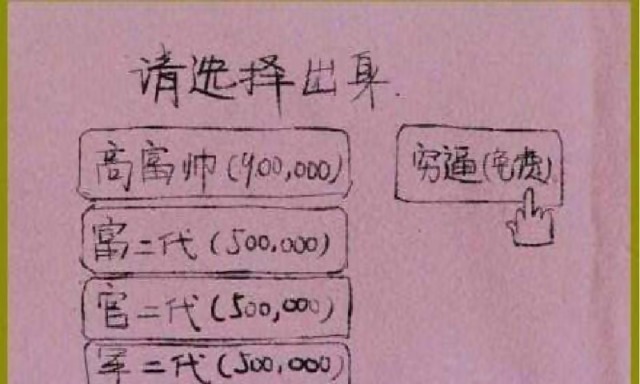 请选择出身.
高富帅(900,000) 穷逼(免费)
富二代(500,000)
官二代(500,000)
军二代(500,000)